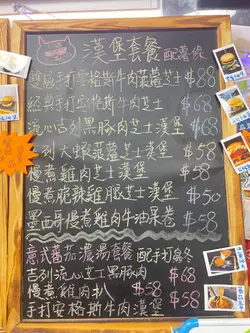 漢堡套餐 配薯條
雙層手打安格斯牛肉菠蘿芝士 $88
經典手打安格斯牛肉芝士 $68
流心吉列黑豚肉芝士漢堡 $68
吉列大蝦菠蘿芝士漢堡 $58
慢煮雞肉芝士漢堡 $58
慢煮脆辣雞腿芝士漢堡 $50
墨西哥慢煮雞肉牛油果卷 $58
意式蕃茄濃湯套餐 配手打烏冬
吉列流心芝士黑豚肉 $68
慢煮雞肉扒 $58
手打安格斯牛肉漢堡 $58